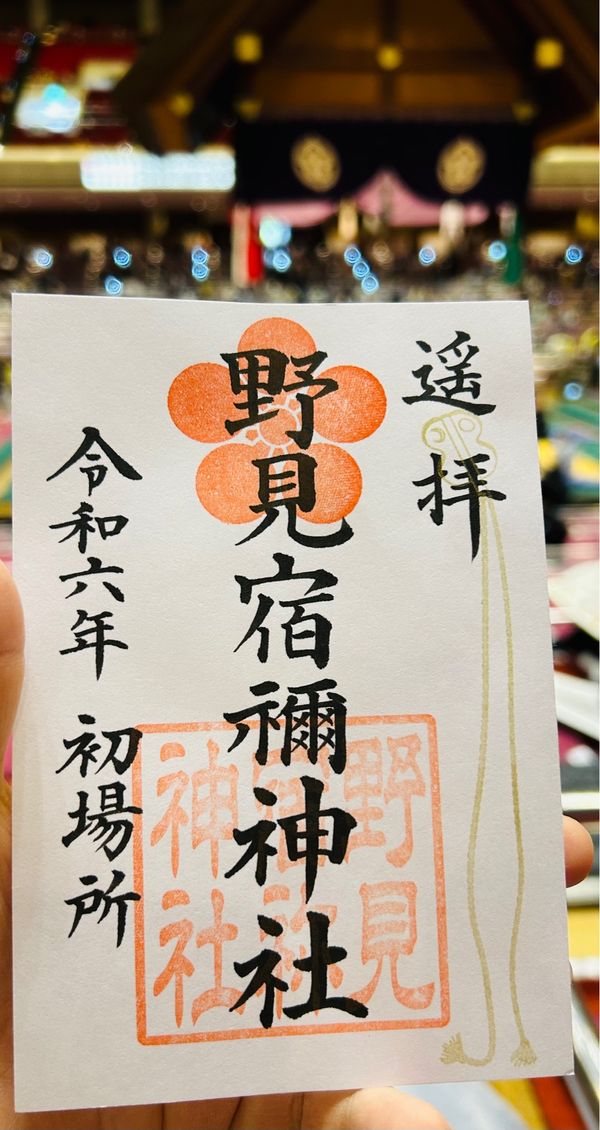 遥拝
野見宿禰神社
野見
宿祢
神社
令和六年 初場所